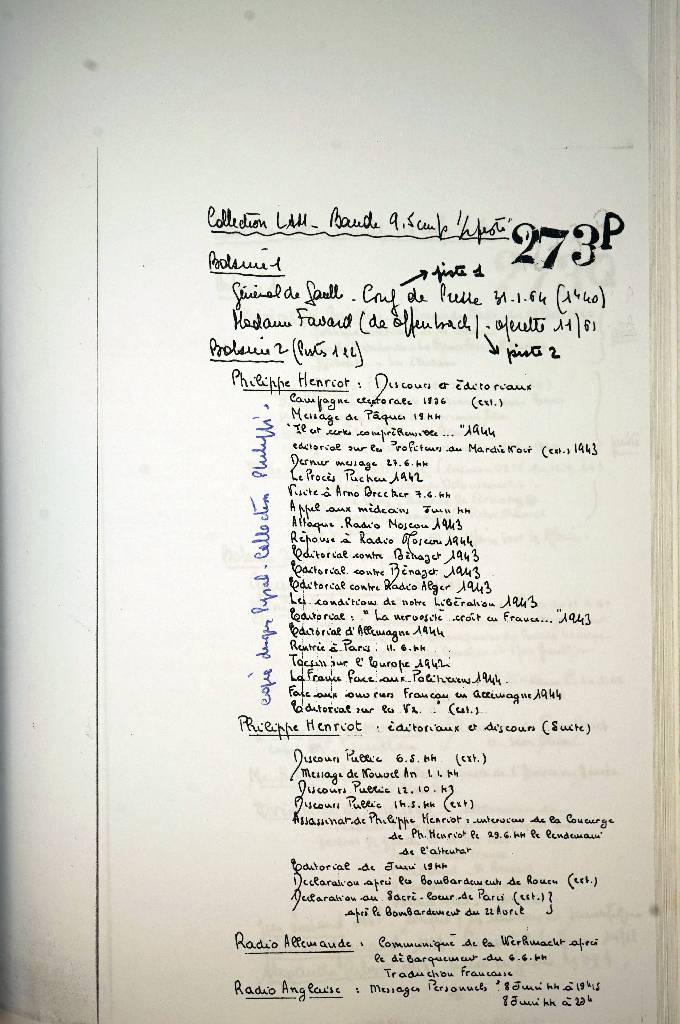 Collection LAM - Bande 9,5 cm/s 1/2 piste
273P
Bobine 1
→ piste 1
Général de Gaulle - Conf de Presse 31-1-64 (1h40)
Madame Favard (de Offenbach) - opérette 11/61
→ piste 2
Bobine 2 (Pistes 1 & 2)
Philippe Henriot : Discours et éditoriaux
Campagne electorale 1936 (ext.)
Message de Pâques 1944
"Il est certes compréhensible..." 1944
editorial sur les Profiteurs du Marché Noir (ext.) 1943
Dernier message 27.6.44
Le Procès Pucheu 1942
Visite à Arno Brecker 7.6.44
Appel aux médecins Juin 44
Attaque Radio Moscou 1943
Réponse à Radio Moscou 1944
Editorial contre Bénazet 1943
Editorial contre Bénazet 1943
Editorial contre Radio Alger 1943
Les conditions de notre Libération 1943
Editorial : "La nervosité croit en France..." 1943
Editorial d'Allemagne 1944
Rentrée à Paris : 11.6.44
Tocsin sur l'Europe 1942
La France Face aux Politiciens 1944
Face aux ouvriers Français en Allemagne 1944
Editorial sur les V2 (ext.)
copie disque Pyral - Collection Philippi.
Philippe Henriot : éditoriaux et discours (Suite)
Discours Public 6.5.44 (ext.)
Message de Nouvel An 1.1.44
Discours Public 12.10.43
Discours Public 14.5.44 (ext)
Assassinat de Philippe Henriot : interview de la Concierge
de Ph. Henriot le 29.6.44 le lendemain
de l'attentat
Editorial de Juin 1944
Declaration après les bombardements de Rouen (ext.)
Declaration au Sacré-Coeur de Paris (ext.) }
après le bombardement du 22 Avril }
Radio Allemande : Communiqué de la Werhmacht après
le débarquement du 6.6.44
Traduction Francaise
Radio Anglaise : Messages Personnels : 8 Juin 44 à 19h15
8 Juin 44 à 22h